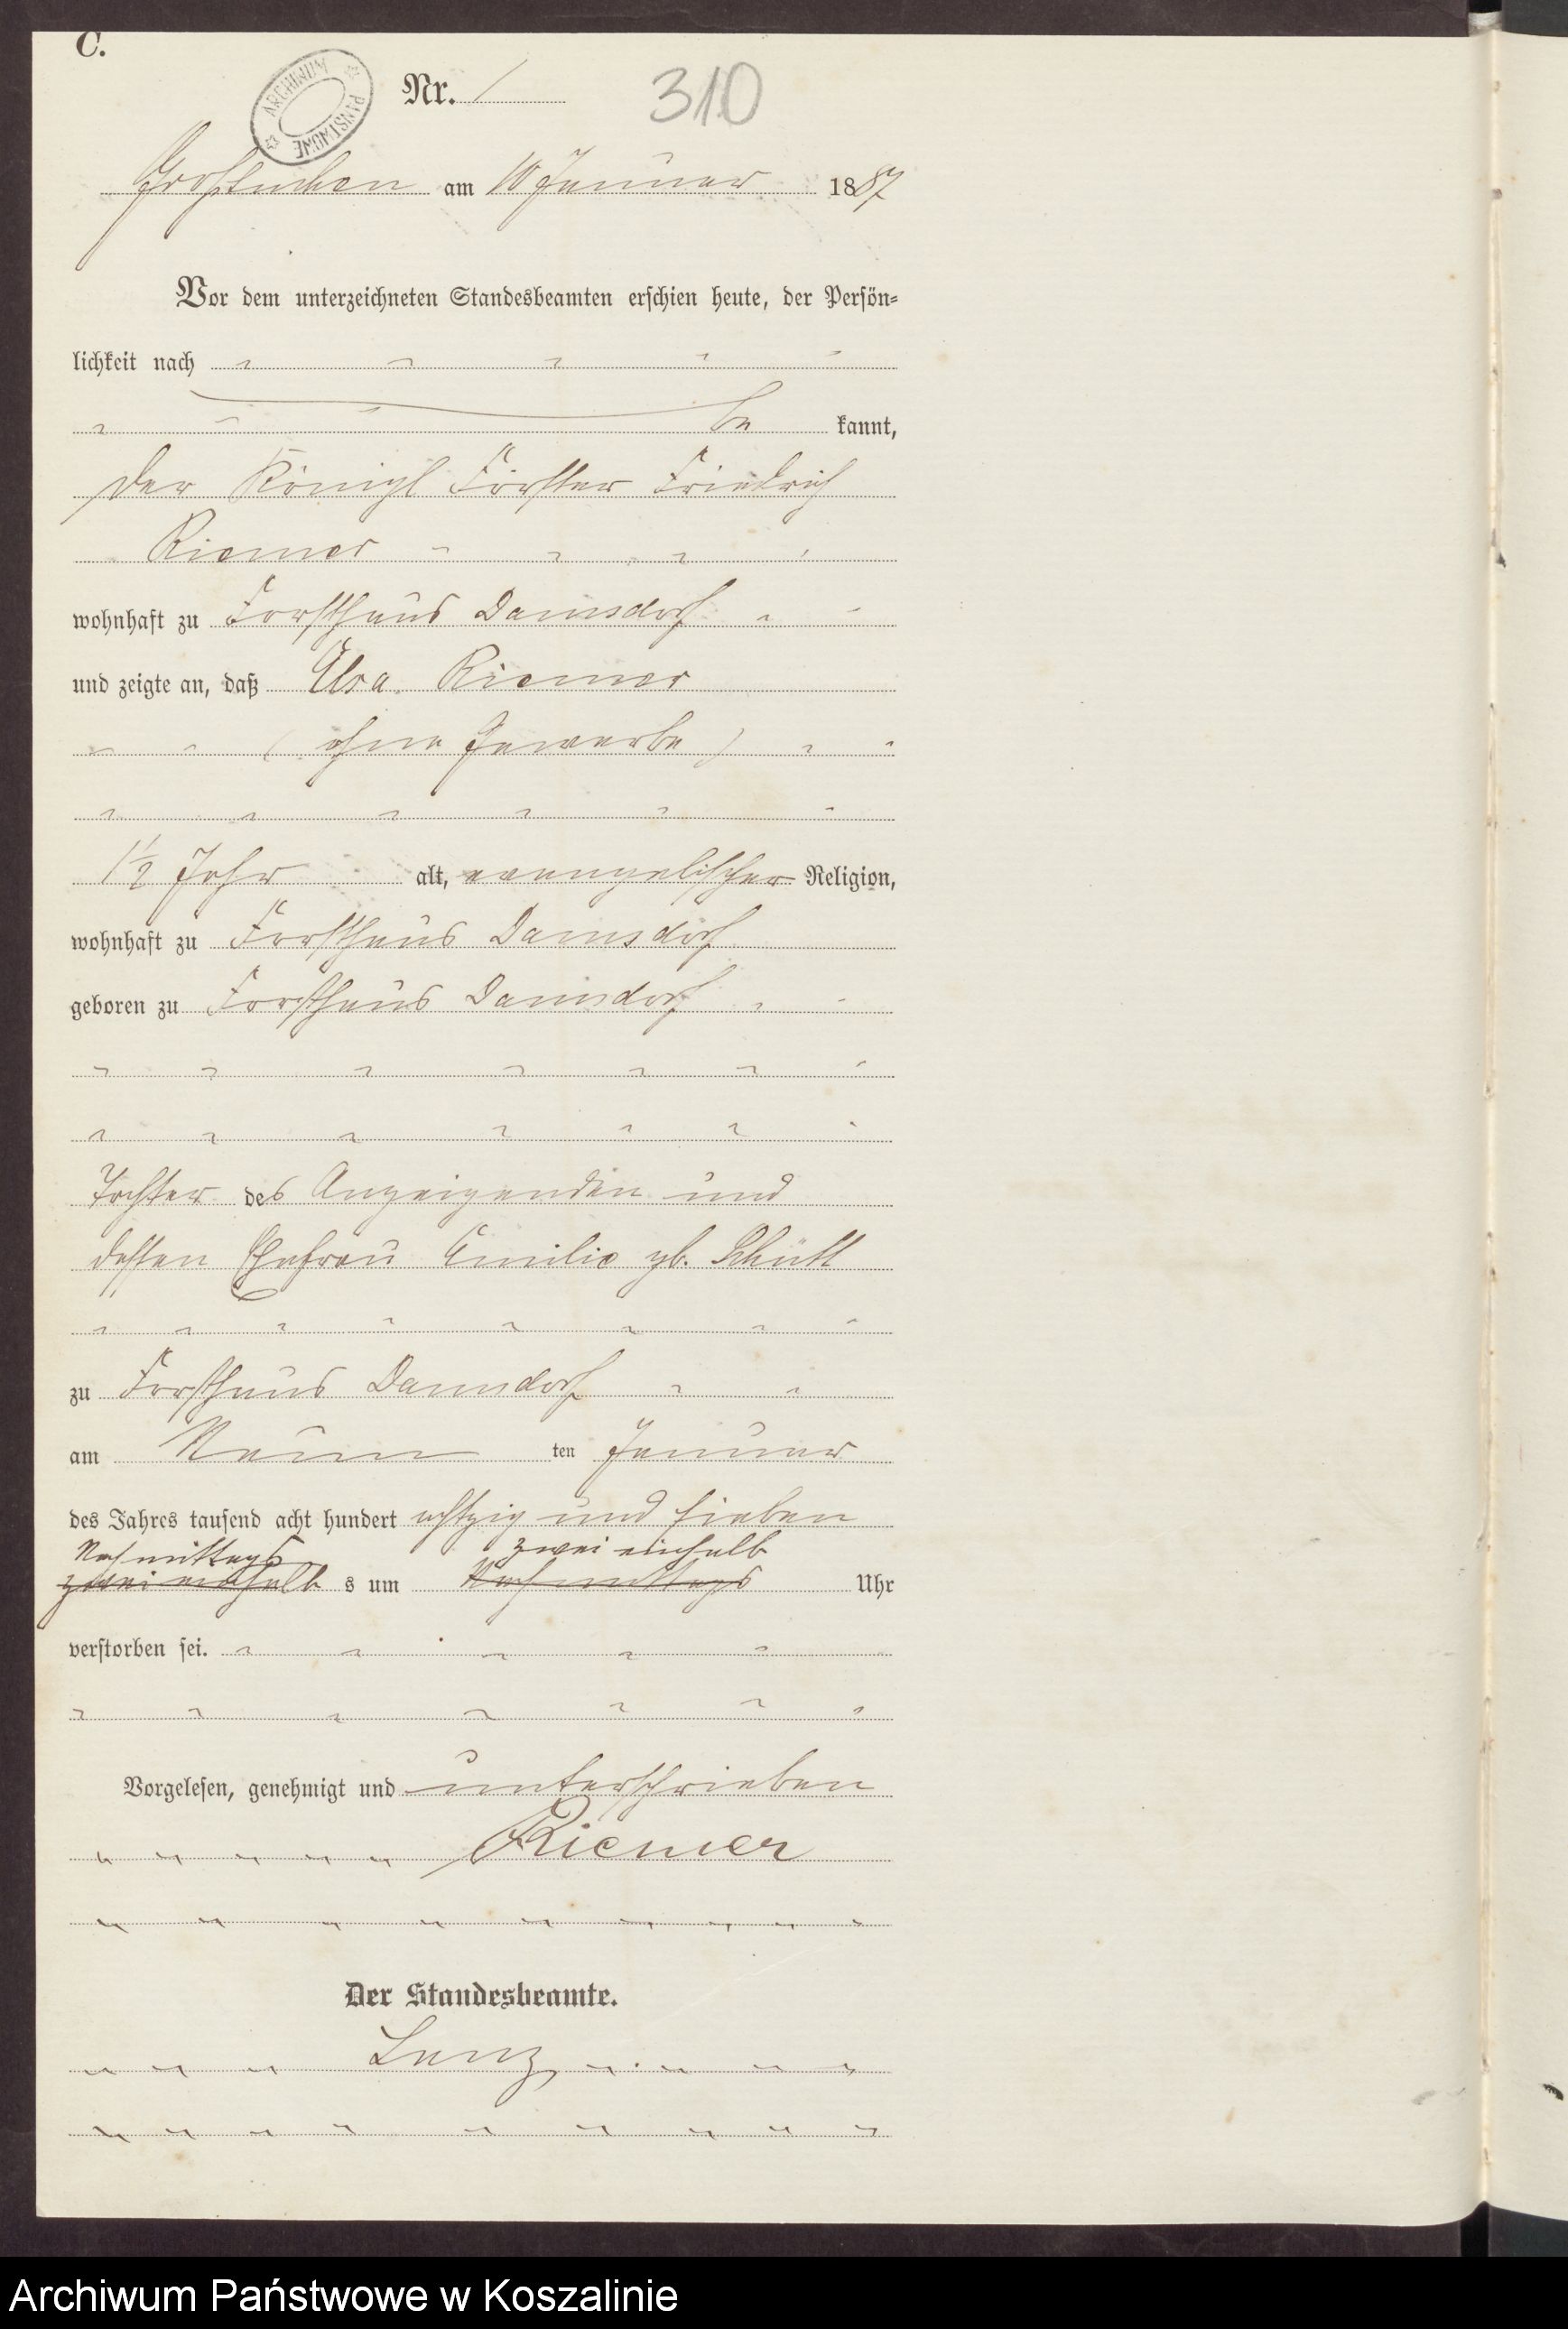 C.
ARCHIWUM PAŃSTWOWE
Nr. 1
310
Großtuchen am 10 Januar 1887
Vor dem unterzeichneten Standesbeamten erschien heute, der Persön-
lichkeit nach
be kannt,
der Königl Förster Friedrich
Riemer
wohnhaft zu Forsthaus Damsdorf
und zeigte an, daß Elsa Riemer
( ohne Gewerbe )
1½ Jahr alt, evangelischer Religion,
wohnhaft zu Forsthaus Damsdorf
geboren zu Forsthaus Damsdorf
Tochter des Anzeigenden und
dessen Ehefrau Emilie gb. Schütt
zu Forsthaus Damsdorf
am Neun ten Januar
des Jahres tausend acht hundert achtzig und sieben
Nachmittags zwei einhalb
zwei einhalb s um Nachmittags Uhr
verstorben sei.
Vorgelesen, genehmigt und unterschrieben
Riemer
Der Standesbeamte.
Lenz
Archiwum Państwowe w Koszalinie